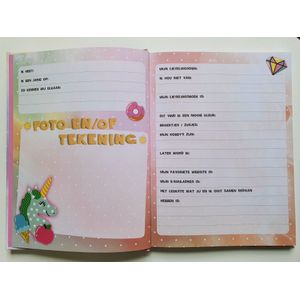 IK HEET:
IK BEN JARIG OP:
ZO KENNEN WIJ ELKAAR:
FOTO EN/OF
TEKENING
MIJN LIEVELINGSDIER:
IK HOU NIET VAN:
MIJN LIEVELINGSBOEK IS:
DIT VIND IK EEN MOOIE KLEUR:
BROERTJES / ZUSJES:
MIJN HOBBY'S ZIJN:
LATER WORD IK:
MIJN FAVORIETE WEBSITE IS:
MIJN E-MAILADRES IS:
HET LEUKSTE WAT JIJ EN IK OOIT SAMEN GEDAAN
HEBBEN IS: